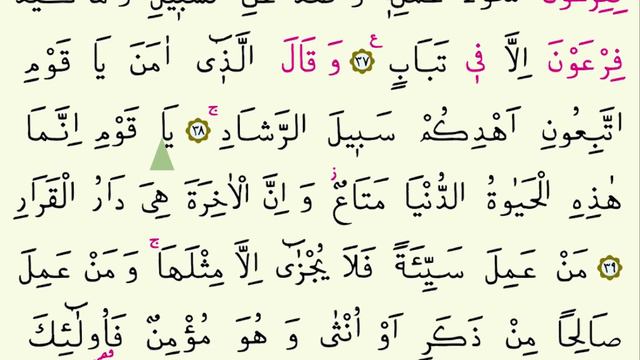 فِرْعَوْنَ اِلَّا فٖي تَبَابٍ ﴿٣٧﴾ وَ قَالَ الَّذٖٓي اٰمَنَ يَا قَوْمِ
اتَّبِعُونِ اَهْدِكُمْ سَبٖيلَ الرَّشَادِ ۚ ﴿٣٨﴾ يَا قَوْمِ اِنَّمَا
هٰذِهِ الْحَيٰوةُ الدُّنْيَا مَتَاعٌ ؗ وَ اِنَّ الْاٰخِرَةَ هِيَ دَارُ الْقَرَارِ
﴿٣٩﴾ مَنْ عَمِلَ سَيِّئَةً فَلَا يُجْزٰٓى اِلَّا مِثْلَهَا ۚ وَ مَنْ عَمِلَ
صَالِحًا مِنْ ذَكَرٍ اَوْ اُنْثٰى وَ هُوَ مُؤْمِنٌ فَاُولٰٓئِكَ